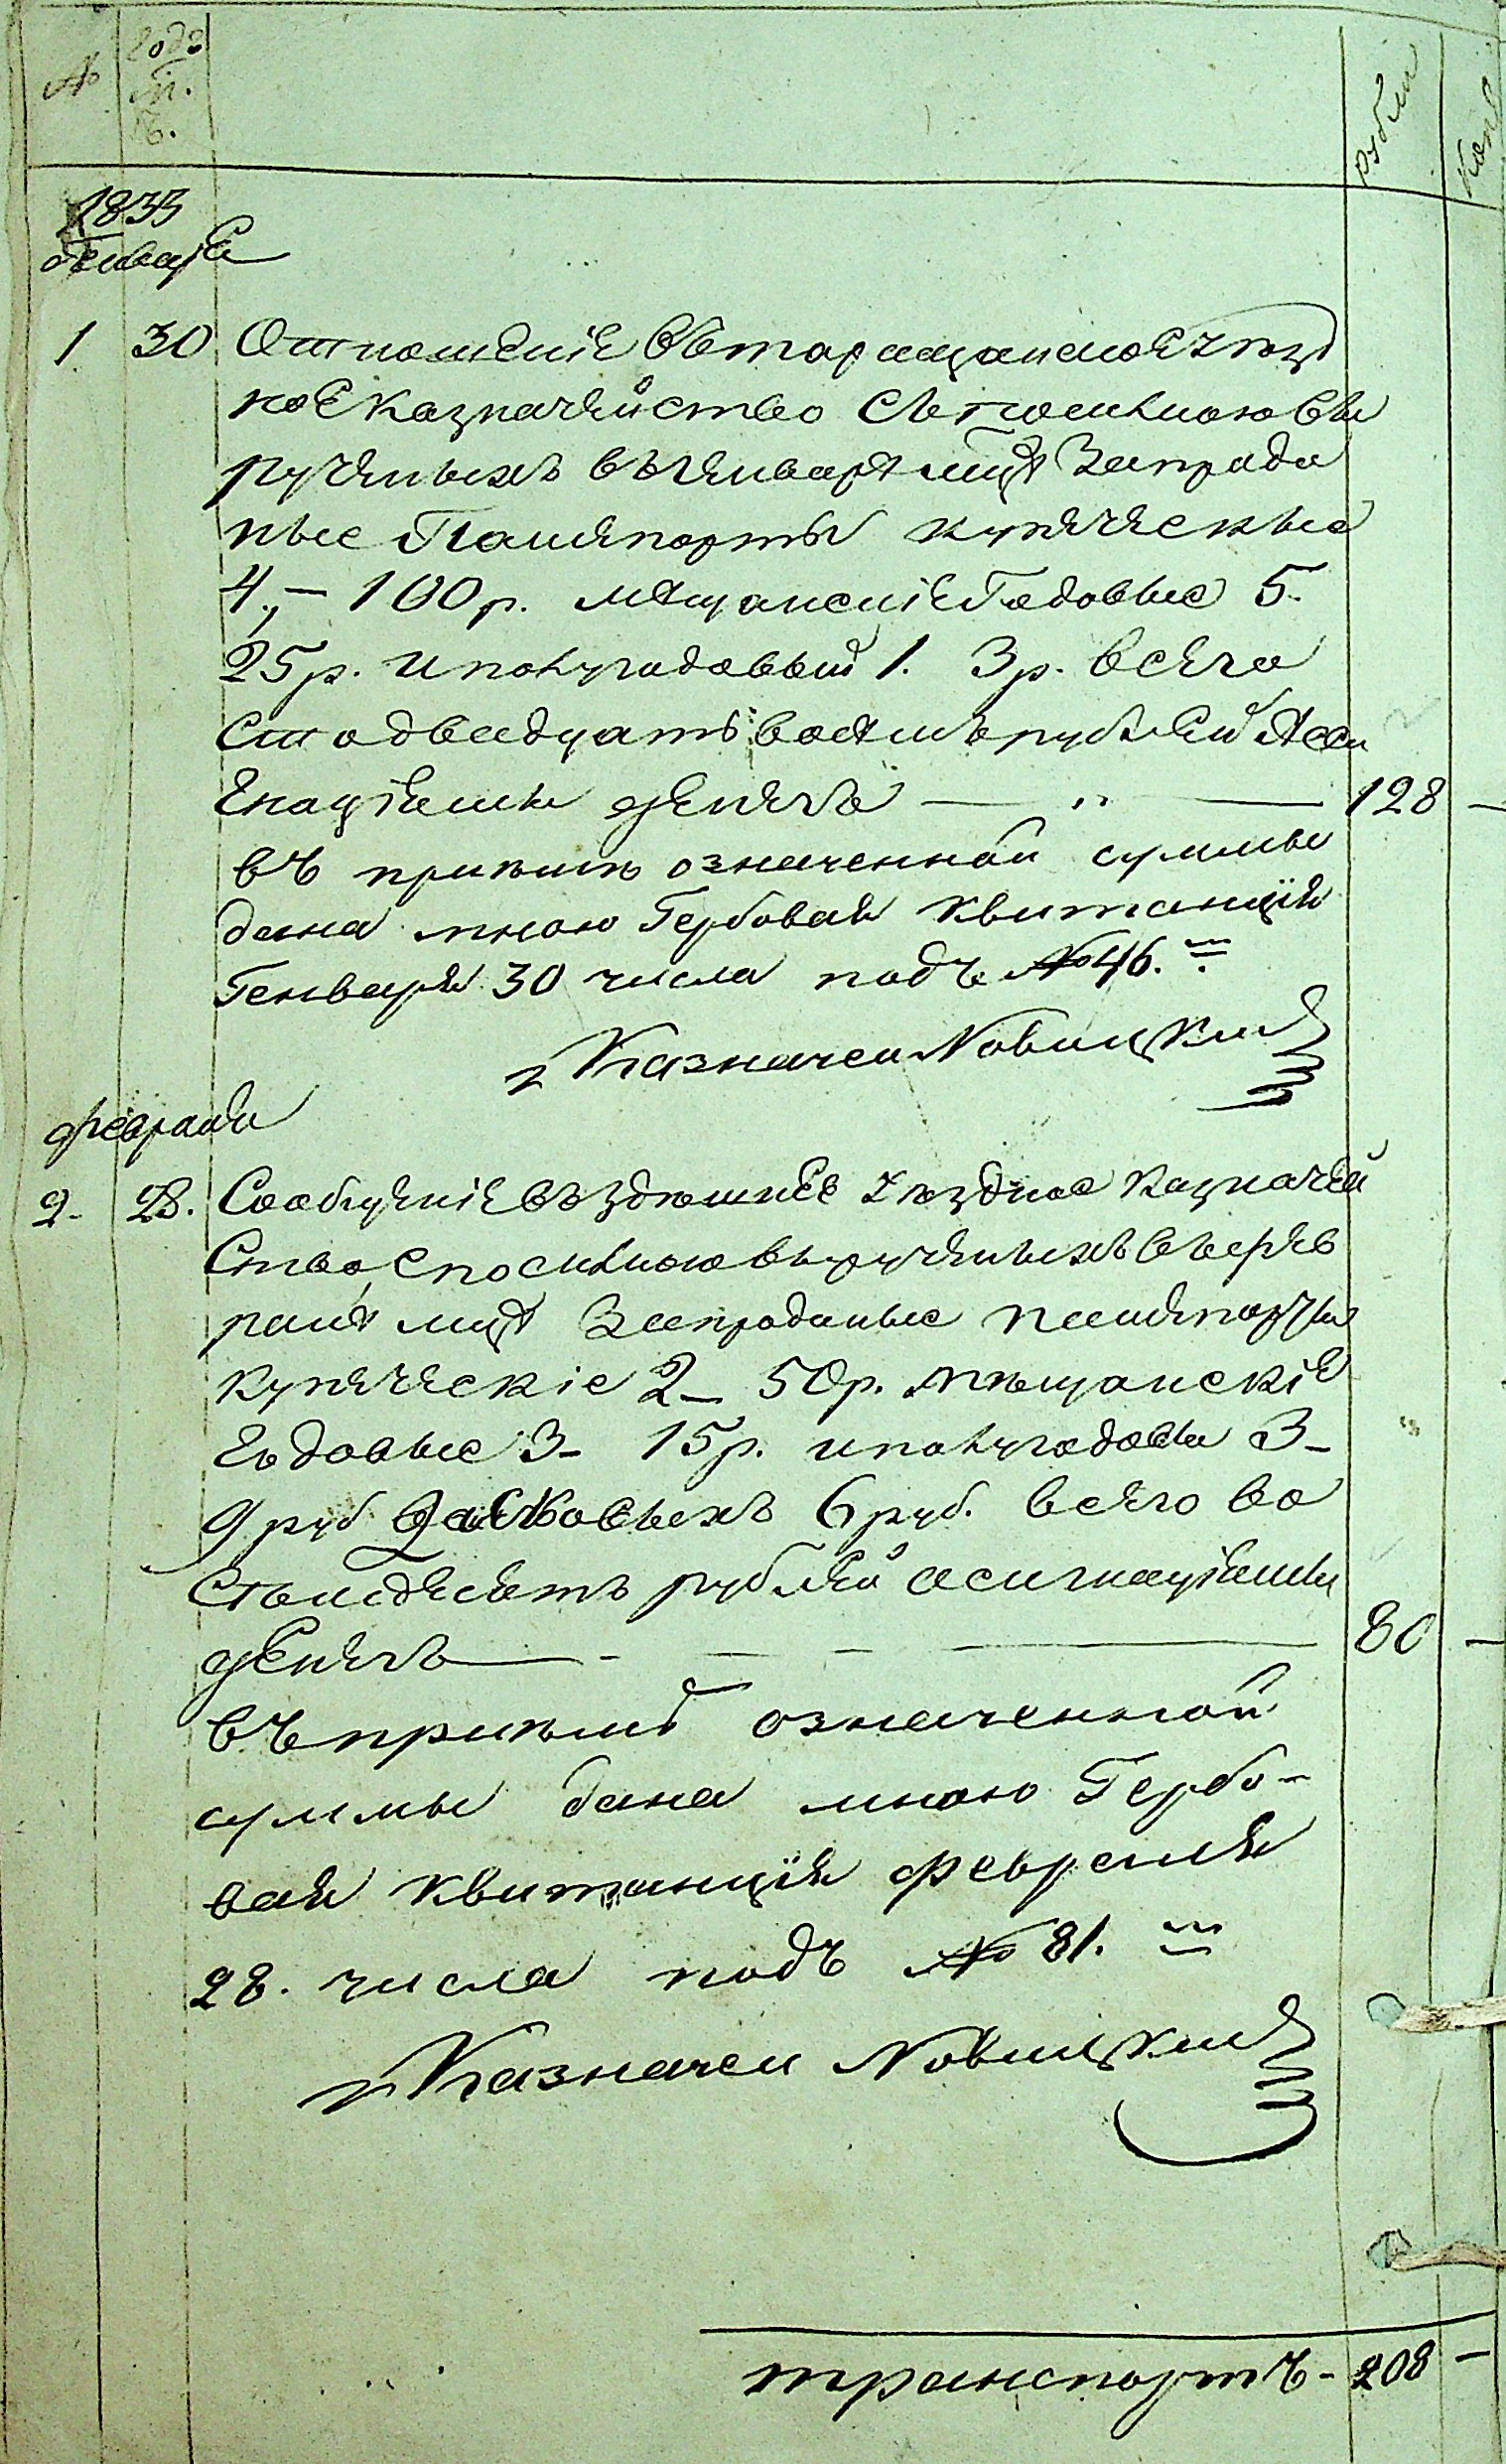 № Годъ М. Ч. Рубли Коп
1833
Генваря
1 30 Отношеніе въ таращанское уѣзд
ное казначейство съ посылкою вы
рученыхъ въ генварѣ мцѣ за прода
ные пашепорты купеческые
4, — 100 р. мѣщанскіе годовые 5.
25 р. и полугодовый 1. 3 р. всего
сто двадцать восѣмъ рублей асси
гнаціями денегъ — „ — 128 —
въ приѣмѣ означенной суммы
дана мною гербовая квитанція
Генваря 30 числа подъ № 46.
Казначеи Новицкии
февраля
2. 28. Сообщеніе въ здѣшнее уѣздное казначей
ство, с посилкою вырученыхъ въ фев
ралѣ мцѣ за проданые пашепорты
купеческіе 2 — 50 р. мѣщанскіе
годовые 3 — 15 р. и полугодовы 3 —
9 руб 6 руб. всего во
сѣмдесятъ рублей асигнаціями
денегъ — — — 80 —
въ приѣмѣ означенной
суммы дана мною гербо-
вая квитанція февраля
28. числа подъ № 81.
Казначеи Новицкии
транспортъ - 208 —